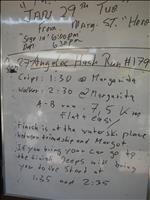 JAN 29TH TUE
From Marg. ST. "Here"
Sign in 6:00pm
6:30pm
27 Angeles Hash Run #179
Cripl: 1:30 @ Margarita
Walker: 2:30 @ Margarita
A-B run 7,5 K
Flat easy
Finish is at the waterski place
between friendship and Margot
If you bring your car go to
the finish Jeeps will bring
you to the Start at
1:35 and 2:35